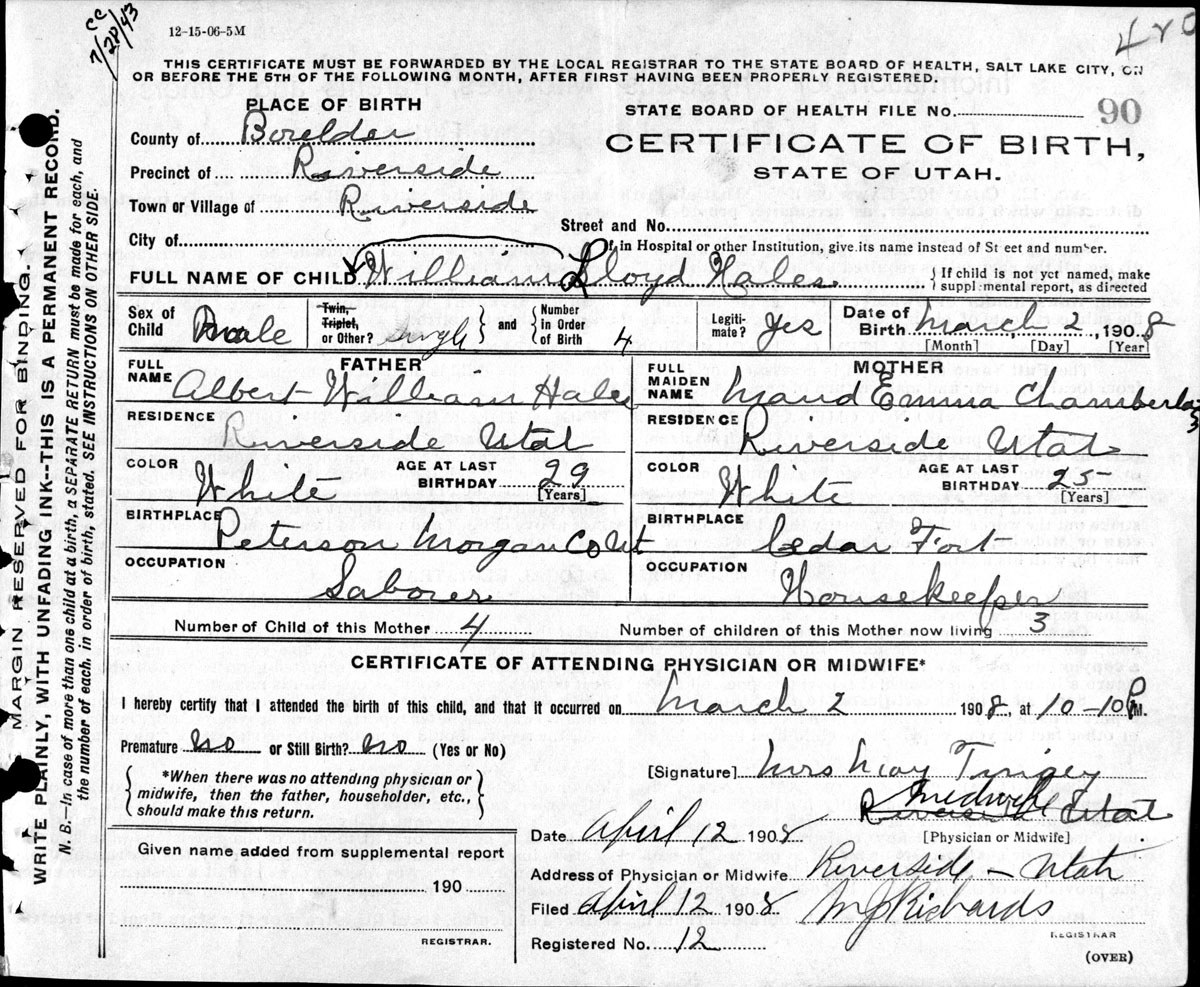 CC
7/28/43
12-15-06-5M
THIS CERTIFICATE MUST BE FORWARDED BY THE LOCAL REGISTRAR TO THE STATE BOARD OF HEALTH, SALT LAKE CITY, ON
OR BEFORE THE 5TH OF THE FOLLOWING MONTH, AFTER FIRST HAVING BEEN PROPERLY REGISTERED.
PLACE OF BIRTH
STATE BOARD OF HEALTH FILE No. 90
County of Boxelder
CERTIFICATE OF BIRTH,
STATE OF UTAH.
Precinct of Riverside
Town or Village of Riverside
Street and No.
City of
If in Hospital or other Institution, give its name instead of Street and number.
FULL NAME OF CHILD William Lloyd Hales
If child is not yet named, make supplemental report, as directed
Sex of Child Male Twin, Triplet, or Other? Single and Number in Order of Birth 4 Legitimate? Yes Date of Birth March 2, 1908
[Month] [Day] [Year]
FATHER
MOTHER
FULL NAME Albert William Hales
FULL MAIDEN NAME Maud Emma Chamberla
RESIDENCE Riverside Utah
RESIDENCE Riverside Utah
COLOR White AGE AT LAST BIRTHDAY 29 [Years]
COLOR White AGE AT LAST BIRTHDAY 25 [Years]
BIRTHPLACE Peterson Morgan Co Ut
BIRTHPLACE Cedar Fort
OCCUPATION Laborer
OCCUPATION Housekeeper
Number of Child of this Mother 4
Number of children of this Mother now living 3
CERTIFICATE OF ATTENDING PHYSICIAN OR MIDWIFE*
I hereby certify that I attended the birth of this child, and that it occurred on March 2 1908, at 10-10 P M.
Premature no or Still Birth? no (Yes or No)
*When there was no attending physician or
midwife, then the father, householder, etc.,
should make this return.
[Signature] Mrs May Tingey
Midwife
Riverside Utah
[Physician or Midwife]
Date April 12 1908
Address of Physician or Midwife Riverside - Utah
Filed April 12 1908 M J Richards
REGISTRAR
Registered No. 12
(OVER)
Given name added from supplemental report
190
REGISTRAR.
MARGIN RESERVED FOR BINDING.
WRITE PLAINLY, WITH UNFADING INK--THIS IS A PERMANENT RECORD.
N. B.—In case of more than one child at a birth, a SEPARATE RETURN must be made for each, and
the number of each, in order of birth, stated. SEE INSTRUCTIONS ON OTHER SIDE.